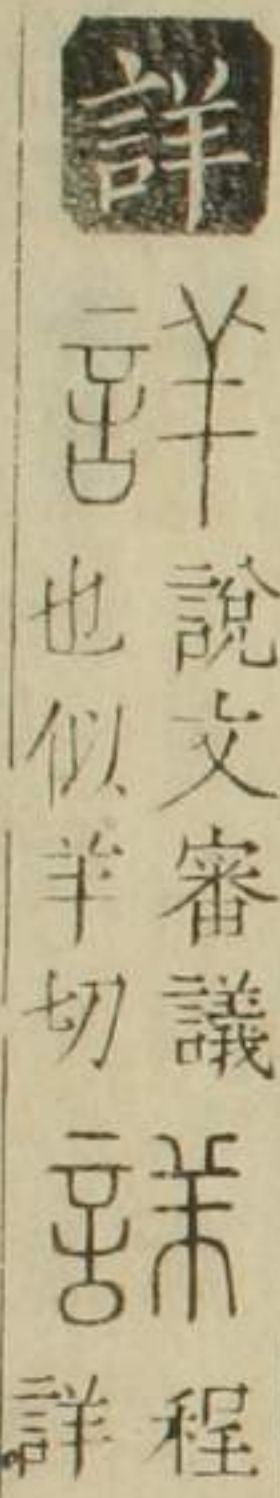 詳
詳
說文審議
也似羊切
詳
程
詳